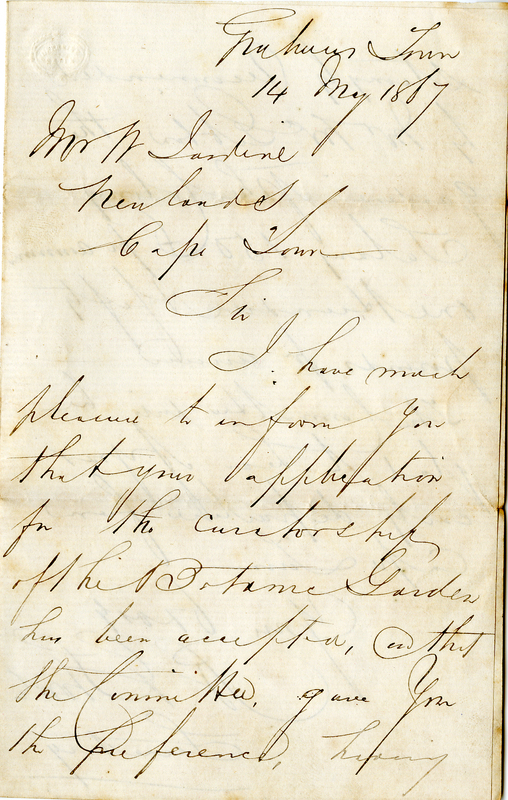 Grahams Town
14 May 1867
Mr W Jardine
Newlands
Cape Town
Sir
I have much
pleasure to inform You
that your application
for the curatorship
of the Botanic Garden
has been accepted, and that
the Committee, gave You
the Preference, having